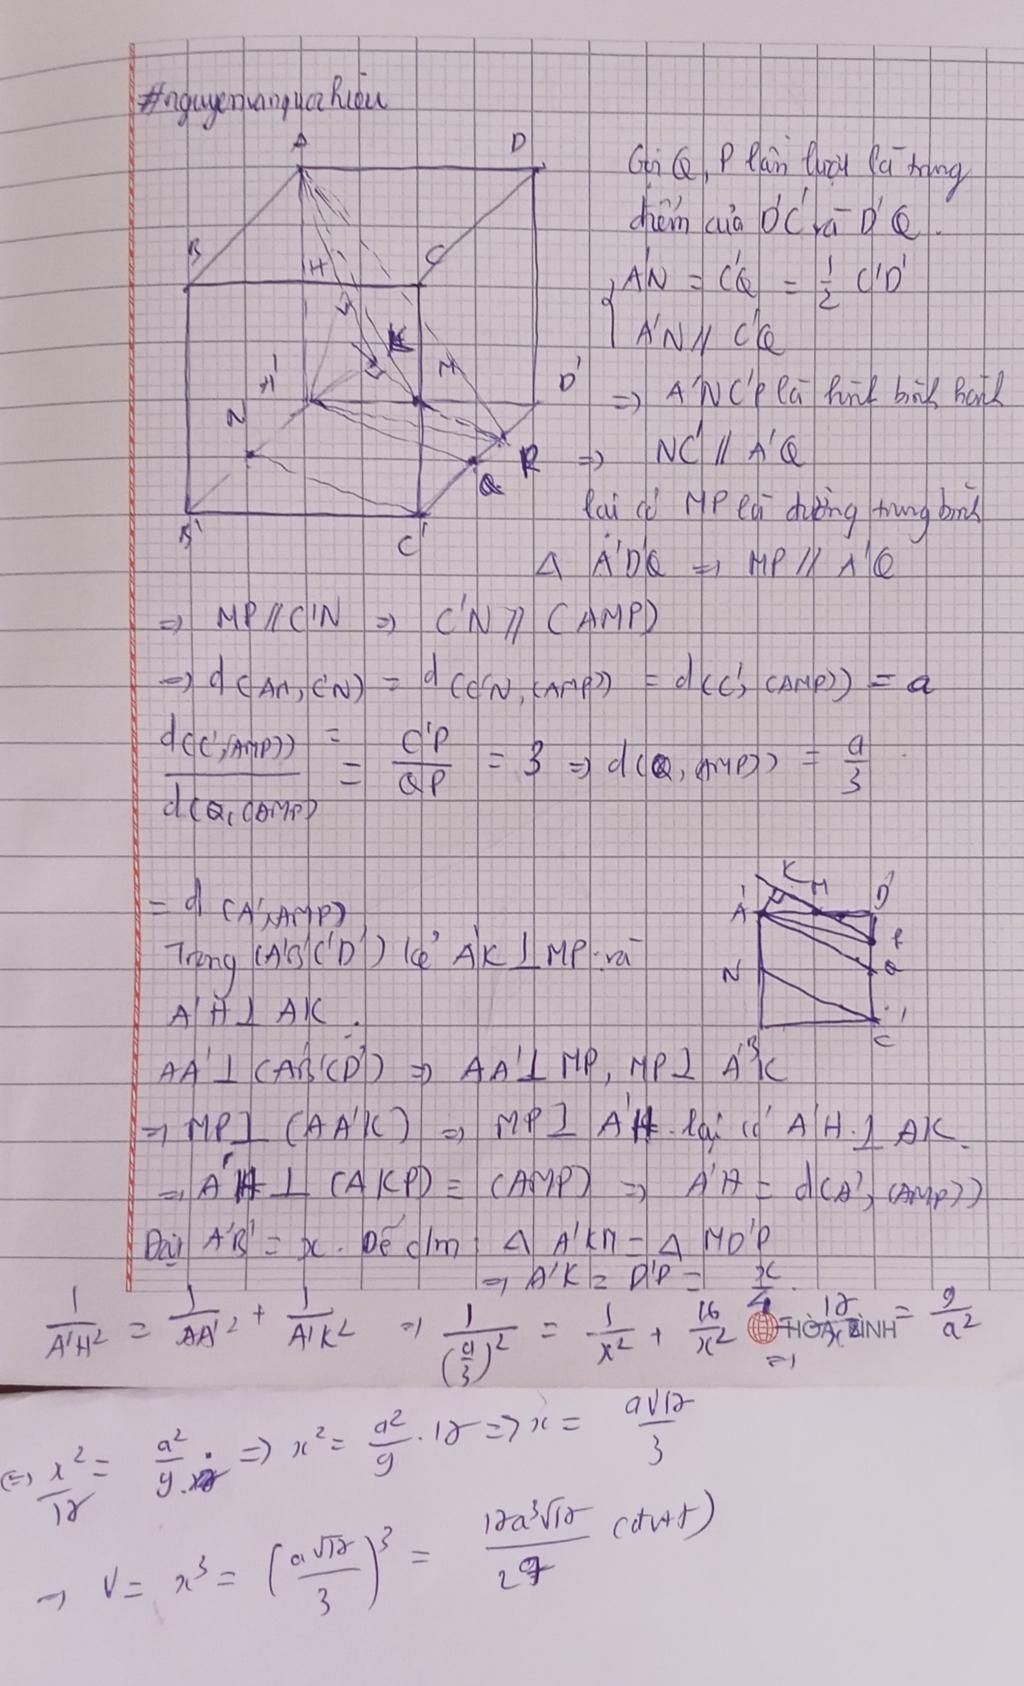 #nguyenvanquanhieu
A
D
B
C
H
K
M
A'
N
D'
P
Q
B'
C'
Gọi Q, P lần lượt là trung
điểm của D'C' và D'Q.
A'N = C'Q = 1/2 C'D'
A'N // C'Q
=> A'NC'P là hình bình hành
=> NC' // A'Q
lại có MP là đường trung bình
Δ A'D'Q => MP // A'Q
=> MP // C'N => C'N // (AMP)
=> d(AM, C'N) = d(C'N, (AMP)) = d(C', (AMP)) = a
d(C', (AMP)) / d(Q, (AMP)) = C'P / QP = 3 => d(Q, (AMP)) = a/3
= d(A', AMP)
Trong (A'B'C'D') kẻ A'K ⊥ MP và
A'H ⊥ AK.
K M
A' D'
P
N Q
B' C'
AA' ⊥ (A'B'C'D') => AA' ⊥ MP, MP ⊥ A'K
=> MP ⊥ (AA'K) => MP ⊥ A'H lại có A'H ⊥ AK.
=> A'H ⊥ (AKP) = (AMP) => A'H = d(A', (AMP))
Đặt A'B' = x. Dễ c/m: Δ A'KM = Δ MD'P
=> A'K = D'P = x/4.
1/A'H² = 1/AA'² + 1/A'K² => 1/(a/3)² = 1/x² + 16/x² => 17/x² = 9/a²
HÒA BÌNH
<=> x²/17 = a²/9 => x² = a²/9 . 17 => x = a√17/3
=> V = x³ = (a√17/3)³ = 17a³√17/27 (đvtt)